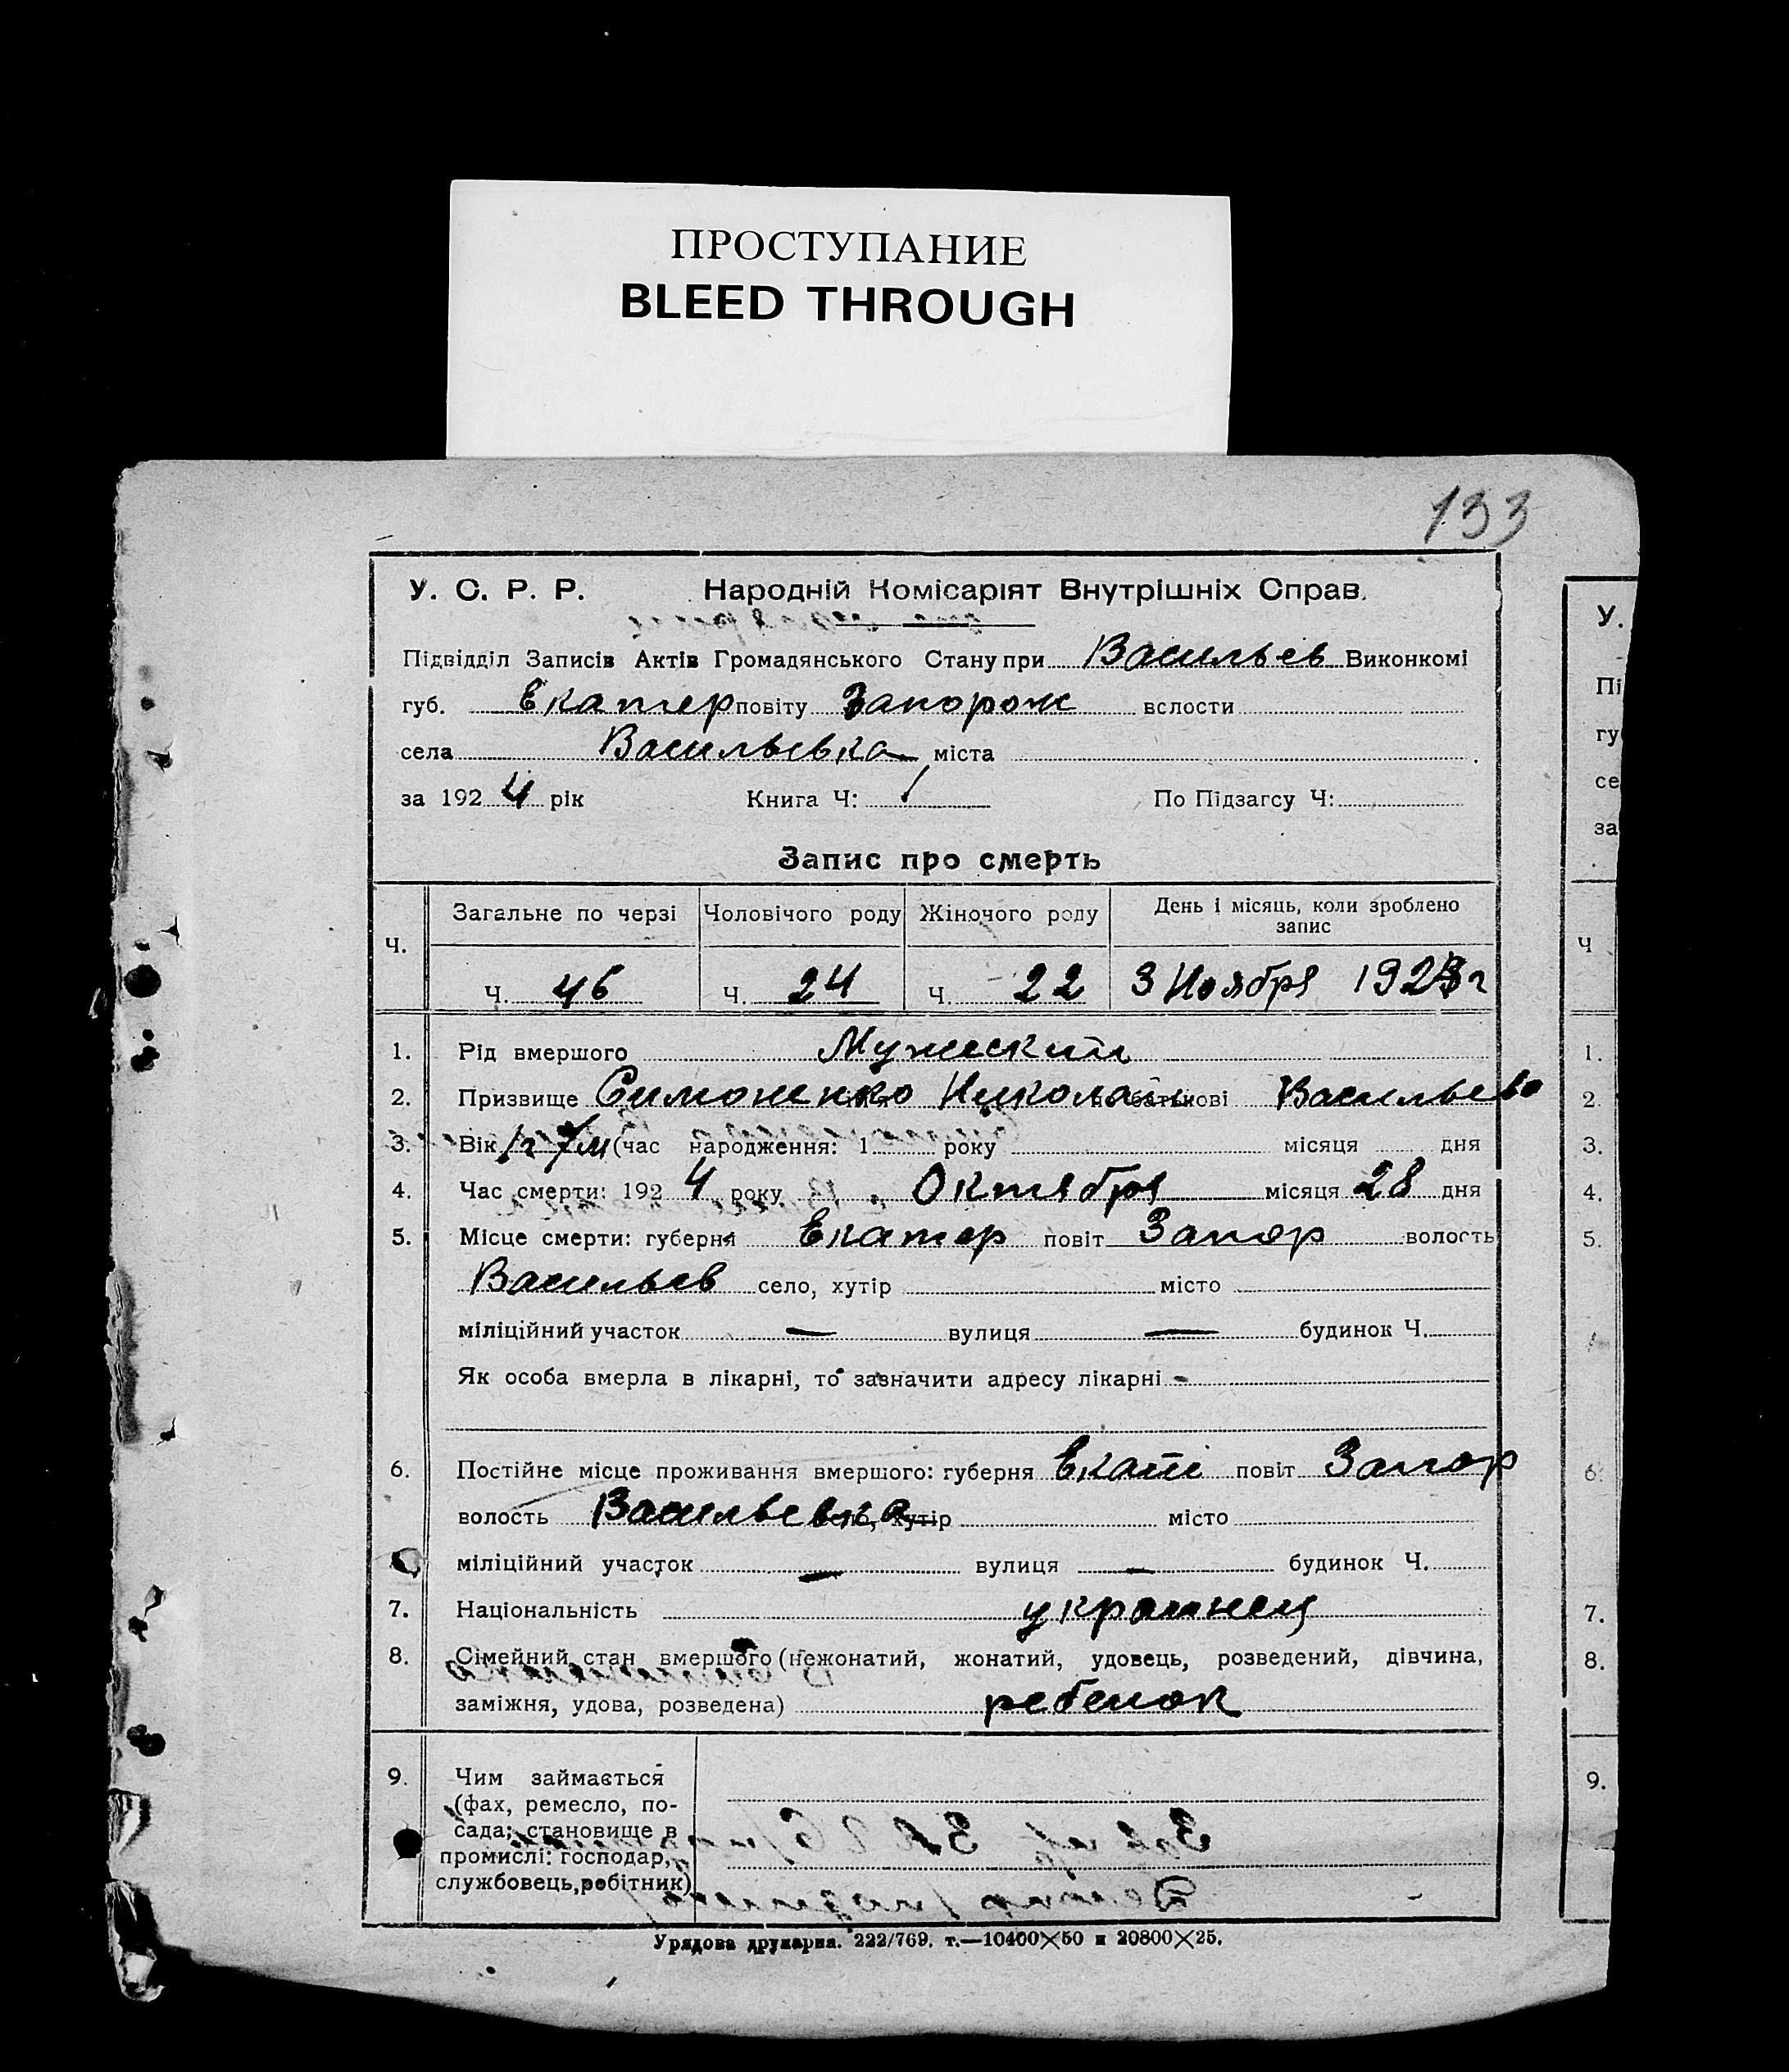 ПРОСТУПАНИЕ
BLEED THROUGH
133
У. С. Р. Р. Народній Комісаріят Внутрішніх Справ.
Підвідділ Записів Актів Громадянського Стану при Васильев Виконкомі
губ. Екатер повіту Запорож волости
села Васильевка міста
за 192 4 рік Книга Ч: 1 По Підзагсу Ч:
Запис про смерть
Ч. Загальне по черзі Чоловічого роду Жіночого роду День і місяць, коли зроблено запис
Ч. 46 Ч. 24 Ч. 22 3 Ноября 192 г
1. Рід вмершого Мужеский
2. Призвище Симоненко Николай по батькові Васильево
3. Вік 1г 7м (час народження: 1 року місяця дня
4. Час смерти: 192 4 року Октября місяця 28 дня
5. Місце смерти: губерня Екатер повіт Запор волость
Васильев село, хутір місто
міліційний участок — вулиця — будинок Ч.
Як особа вмерла в лікарні, то зазначити адресу лікарні -
6. Постійне місце проживання вмершого: губерня Екате повіт Запор
волость Васильевка село, хутір місто
міліційний участок — вулиця — будинок Ч.
7. Національність украинец
8. Сімейний стан вмершого (нежонатий, жонатий, удовець, розведений, дівчина,
заміжня, удова, розведена) ребенок
9. Чим займається
(фах, ремесло, по-
сада; становище в
промислі: господар,
службовець, робітник)
Урядова друкарня. 222/769. т.—10400×50 и 20800×25.
У.
Пі
гу
се
за
Ч
1.
2.
3.
4.
5.
6.
7.
8.
9.